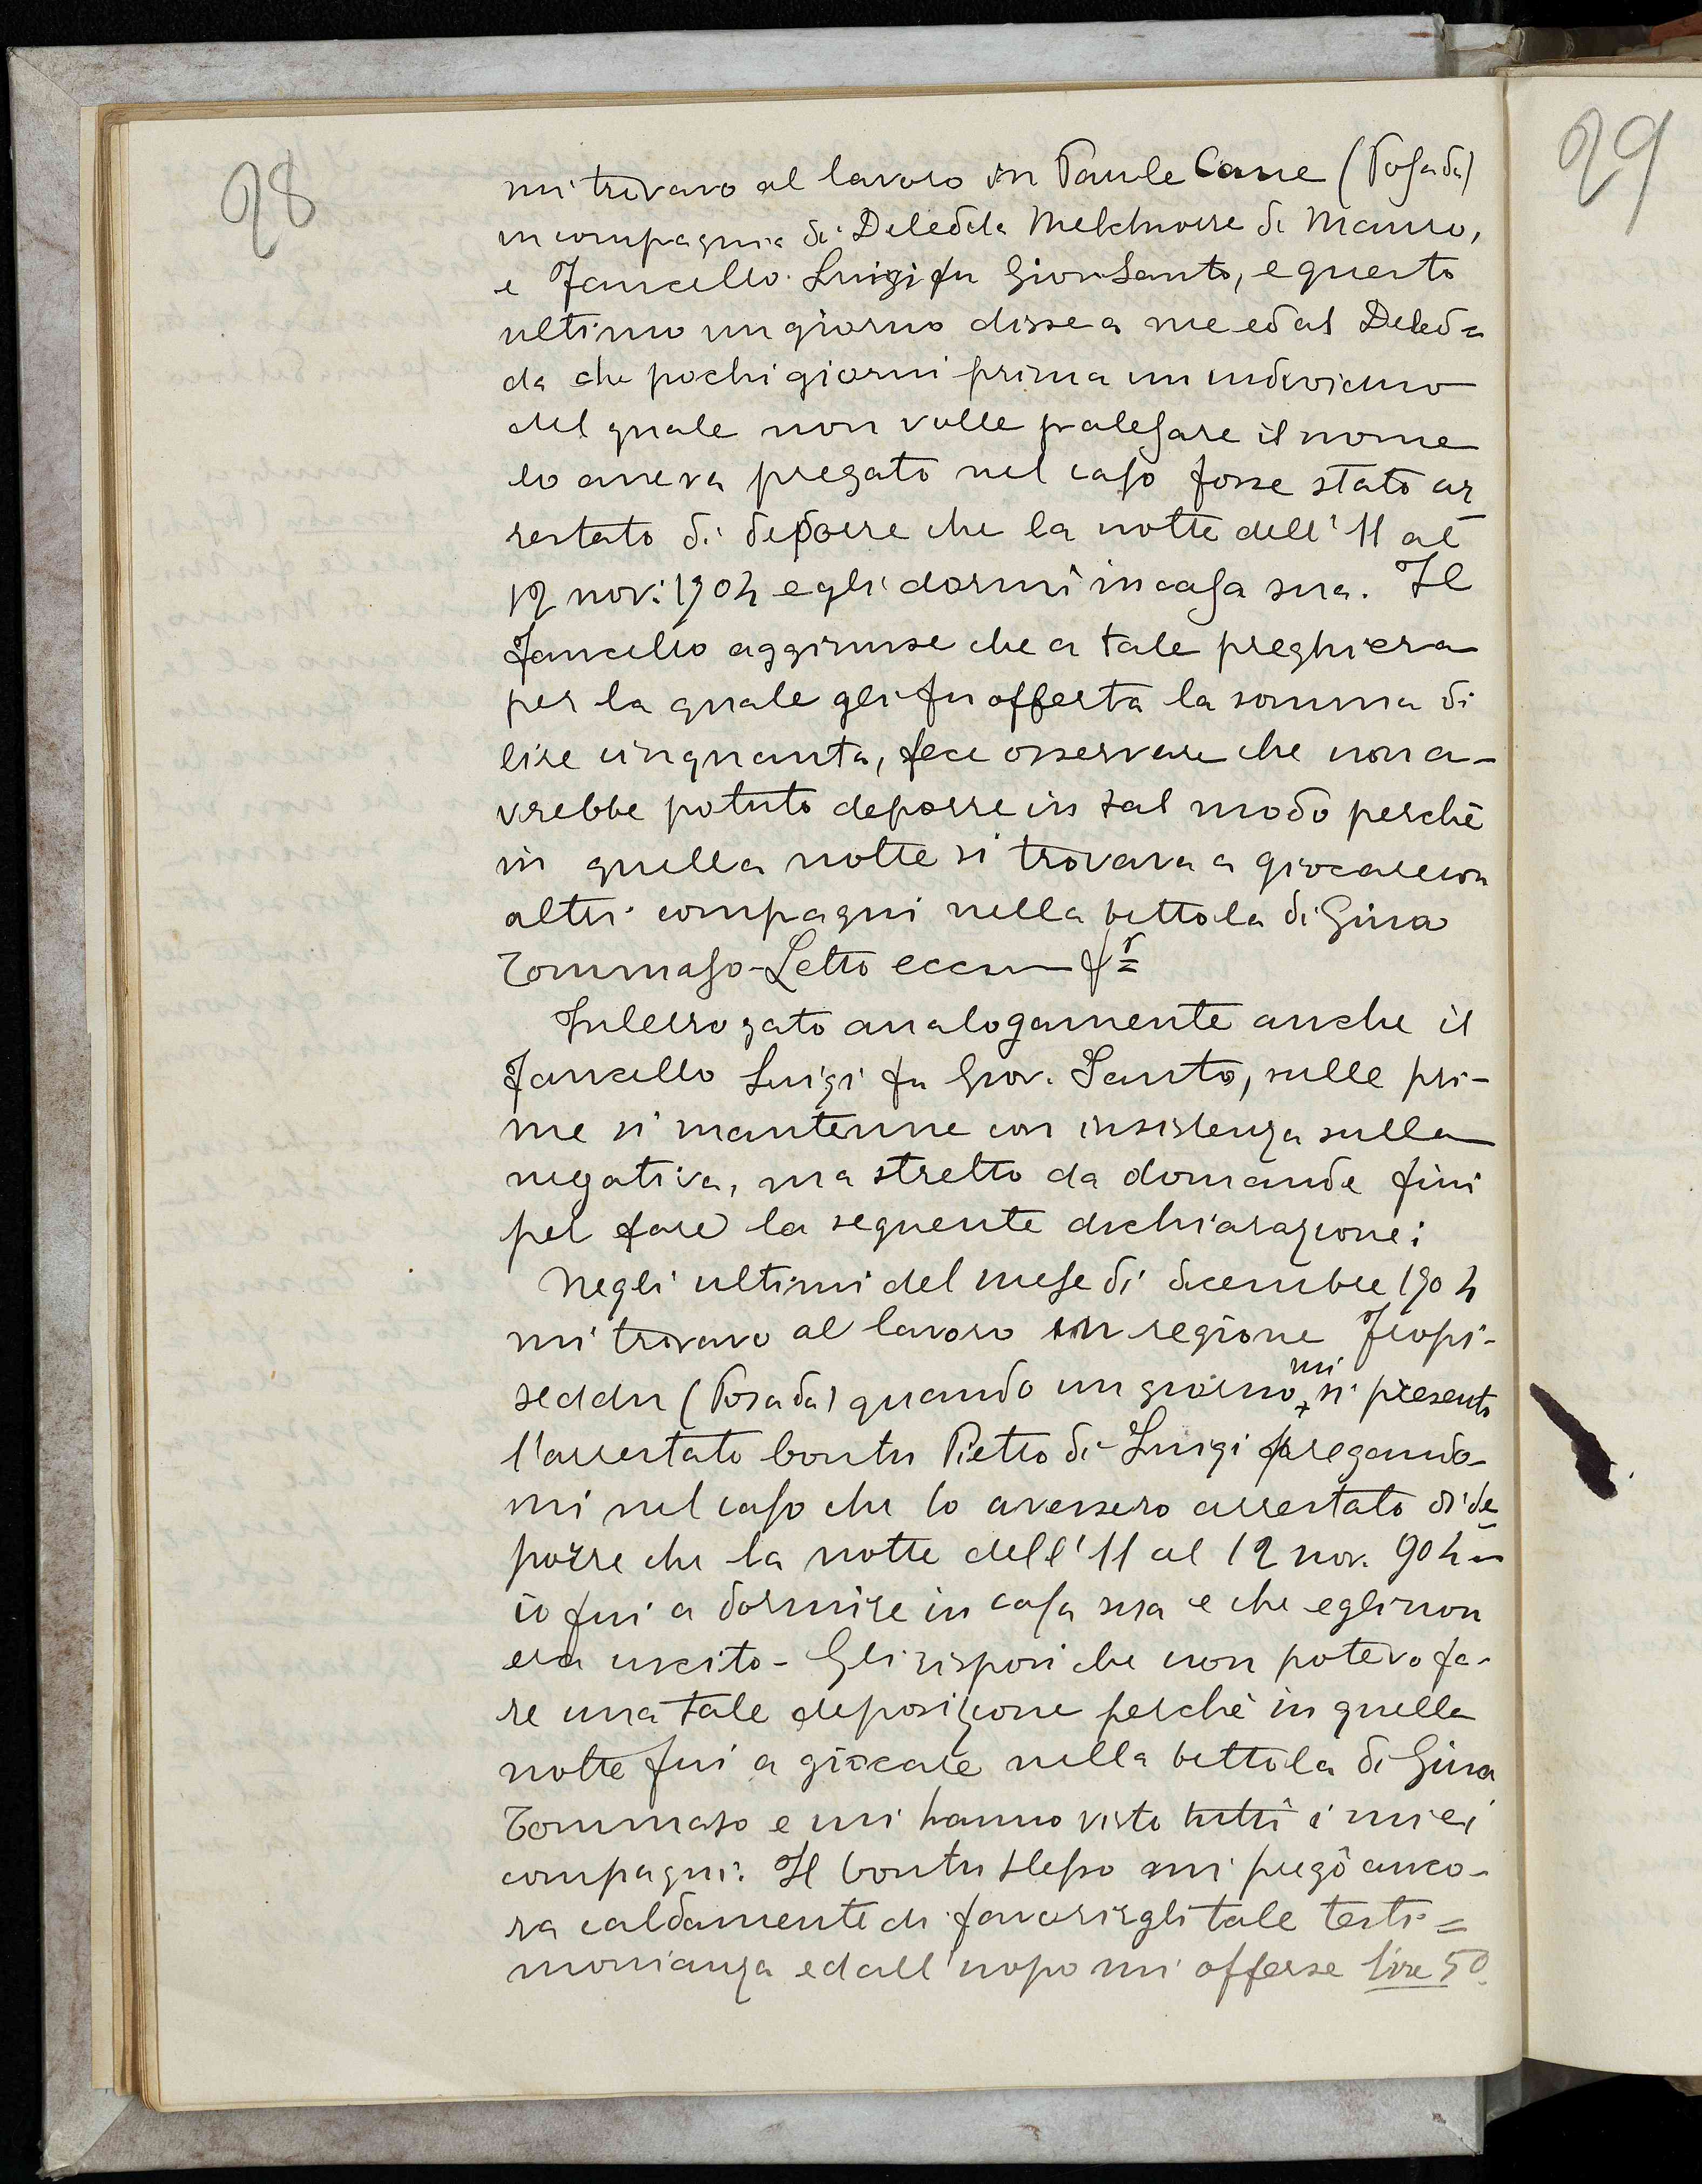 28
mi trovavo al lavoro in Paule Cane (Posada)
in compagnia di Deledda Melchiorre di Mauro,
e Fancello Luigi fu Giov. Santo, e questo
ultimo un giorno disse a me ed al Deled=
da che pochi giorni prima un individuo
del quale non volle palesare il nome
lo aveva pregato nel caso fosse stato ar
restato di deporre che la notte dell'11 al
12 nov: 1904 egli dormì in casa sua. Il
Fancello aggiunse che a tale preghiera
per la quale gli fu offerta la somma di
lire cinquanta, fece osservare che non a-
vrebbe potuto deporre in tal modo perchè
in quella notte si trovava a giocare con
altri compagni nella bettola di Gina
Tommaso - Letto ecc. f.º
Interrogato analogamente anche il
Fancello Luigi fu Giov. Santo, sulle pri-
me si mantenne con insistenza sulla
negativa, ma stretto da domande finì
per fare la seguente dichiarazione:
Negli ultimi del mese di dicembre 1904
mi trovavo al lavoro in regione
seddu (Posada) quando un giorno mi si presentò
l'arrestato Contu Pietro di Luigi pregando-
mi nel caso che lo avessero arrestato di de
porre che la notte dell'11 al 12 nov. 904
io fui a dormire in casa sua e che egli non
era uscito - Gli risposi che non potevo fa-
re una tale deposizione perchè in quella
notte fui a giocare nella bettola di Gina
Tommaso e mi hanno visto tutti i miei
compagni. Il Contu stesso mi pregò anco-
ra caldamente di favorirgli tale testi=
monianza ed all'uopo mi offerse lire 50.
29